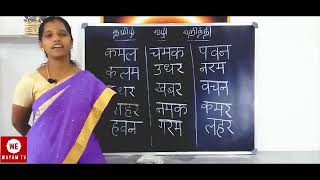 தமிழ் வழி ஹிந்தி
कमल चमक पवन
कलम उधर नरम
खबर वचन
शहर नमक कमर
हवन गरम लहर
WE
MAYAM TV